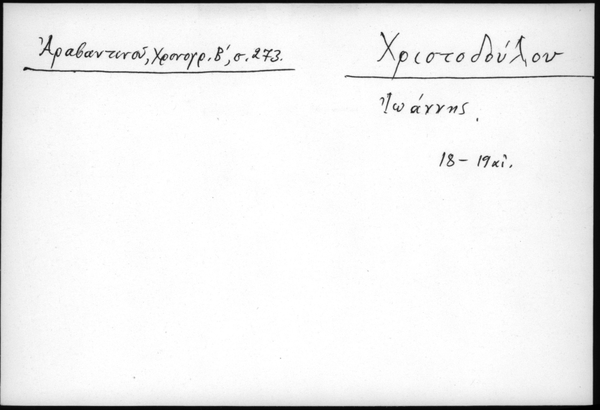 Ἀραβαντινοῦ, Χρονογρ. Β', σ. 273.
Χριστοδούλου
Ἰωάννης.
18 – 19 αἰ.